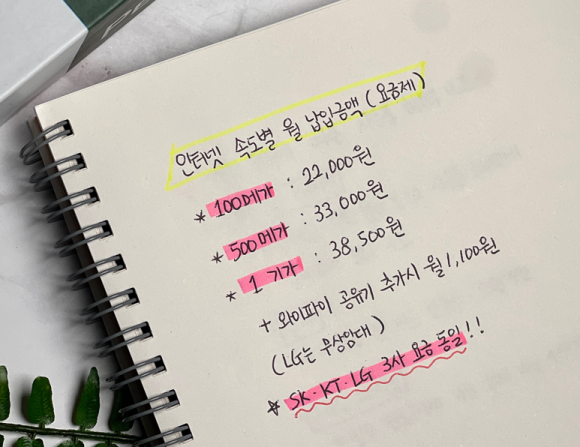 인터넷 속도별 월 납입금액 (요금제)
* 100메가 : 22,000원
* 500메가 : 33,000원
* 1 기가 : 38,500원
+ 와이파이 공유기 추가시 월 1,100원
(LG는 무상임대)
* SK·KT·LG 3사 요금 동일!!